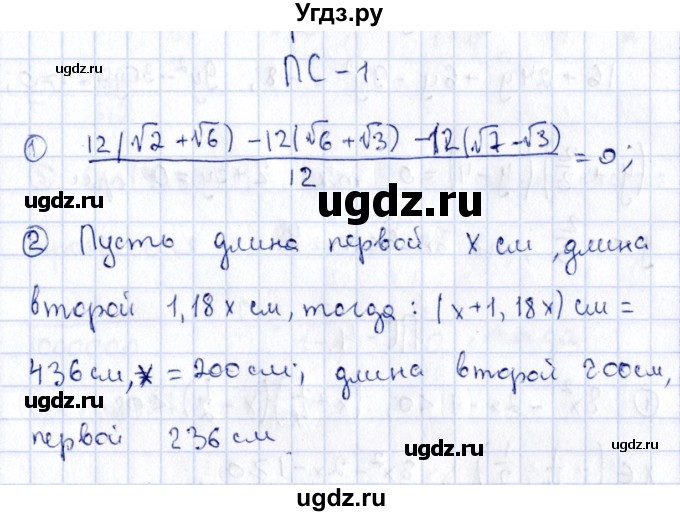 Угдз.ру
ugdz.ru ugdz.ru
ПС - 1.
① 12(√2 + √6) - 12(√6 + √3) - 12(√7 - √3)
12 = 0;
ugdz.ru ugdz.ru
② Пусть длина первой x см, длина
второй 1,18x см, тогда: (x + 1,18x) см =
436 см, x = 200 см; длина второй 200 см,
ugdz.ru ugdz.ru
первой 236 см.
ugdz.ru ugdz.ru
ugdz.ru